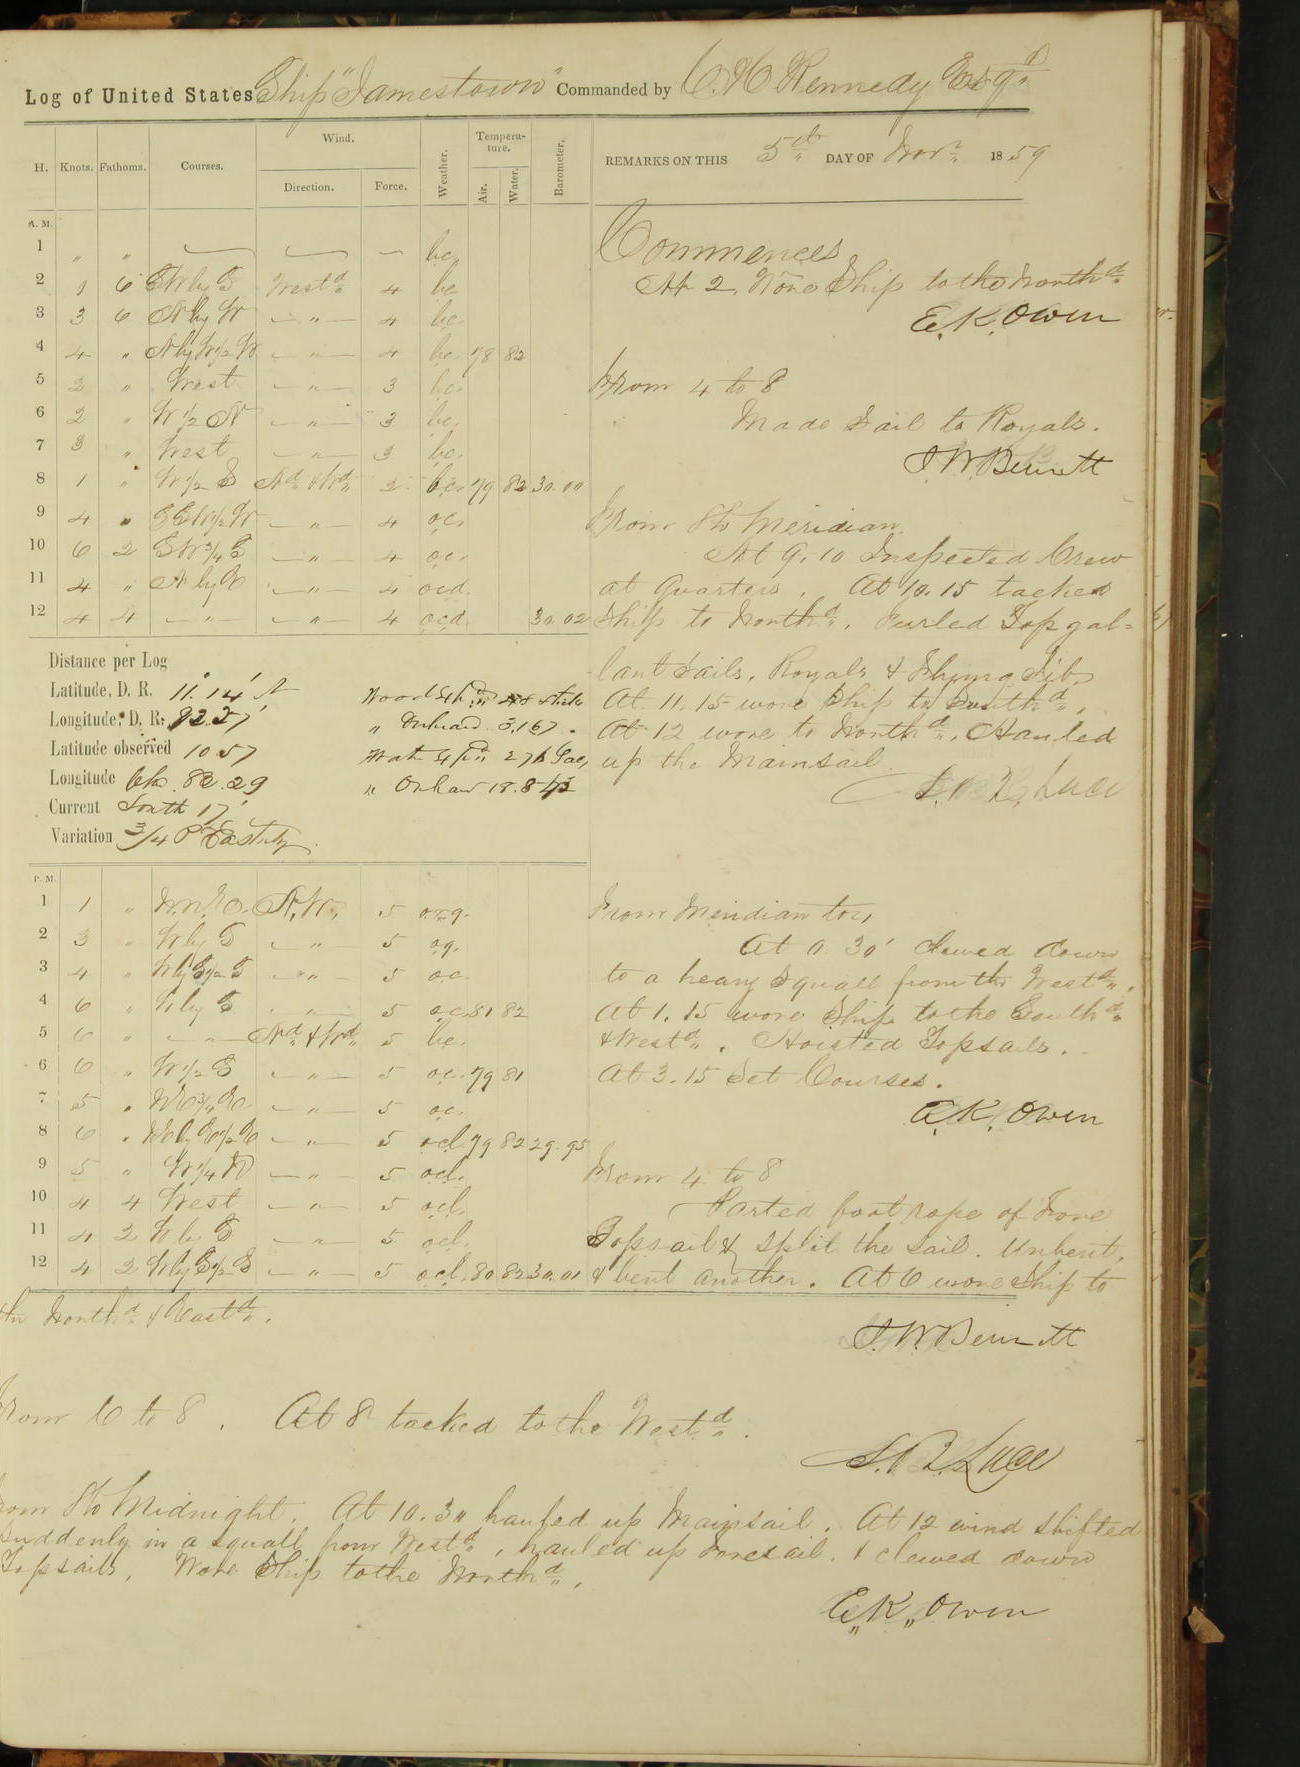 Log of United States Ship "Jamestown" Commanded by C. H. Kennedy Esqr
H. Knots. Fathoms. Courses. Wind. Direction. Force. Weather. Tempera-ture. Air. Water. Barometer.
REMARKS ON THIS 5th DAY OF Novr 1859
A. M.
1 " " — — — bc
2 1 6 SW by S Westd 4 bc
3 3 6 N by W — " — 4 bc
4 4 " N by W 1/2 W — " — 4 bc 78 82
5 2 " West — " — 3 bc
6 2 " W 1/2 N — " — 3 bc
7 3 " West — " — 3 bc
8 1 " W 1/2 S Nd & Wd 2 bc 79 82 30.00
9 4 " SSW 1/2 W — " — 4 oc
10 6 2 SW 3/4 S — " — 4 oc
11 4 " N by E — " — 4 ocd
12 4 4 — " — — " — 4 ocd 30.02
Commences
At 2. Wore Ship to the Northd
E. K. Owen
From 4 to 8
Made Sail to Royals.
J. W. Bennett
From 8 to Meridian
At 9.10 Inspected Crew
at Quarters. At 10.15 tacked
Ship to Northd. Furled Topgal=
lant Sails, Royals & Flying Jib
At 11.15 wore Ship to Southd.
At 12 wore to Northd. Hauled
up the Mainsail.
S. B. Luce
Distance per Log
Latitude, D. R. 11° 14' N
Longitude, D. R.
Latitude observed 10 57
Longitude Chr. 82.29
Current South 17'
Variation 3/4 Pt Easterly
" Onboard 3,167.
P. M.
1 1 " N.N.E. N.W. 5
2 3 " W by S — " — 5 oq.
3 4 " W by S 1/2 S — " — 5 oc
4 6 " W by S " 5 oc 81 82
5 6 " — " — Nd & Wd 5 bc.
6 6 " W 1/2 S — " — 5 oc. 79 81
7 5 " NE 3/4 E — " — 5 oc.
8 6 " NE by E 1/2 E — " — 5 ocl. 79 82 29.95
9 5 " W 1/4 N — " — 5 ocl.
10 4 4 West — " — 5 ocl.
11 4 2 W by S — " — 5 ocl.
12 4 2 W by S 1/2 S — " — 5 ocl. 80 82 30.01
From Meridian to 4
At 0.30' clewed down
to a heavy Squall from the Westd.
At 1.15 wore Ship to the Southd
& Westd. Hoisted Topsails.
At 3.15 Set Courses.
E. K. Owen
From 4 to 8
Parted foot rope of Fore
Topsail & split the sail. Unbent,
& bent another. At 6 wore Ship to
the Northd & Eastd.
J. W. Bennett
From 6 to 8. At 8 tacked to the Westd.
S. B. Luce
From 8 to Midnight. At 10.30 hauled up Mainsail. At 12 wind shifted
suddenly in a squall from Westd, hauled up Foresail, & clewed down
Topsails, Wore Ship to the Northd.
E. K. Owen